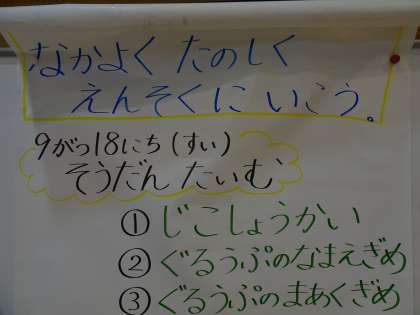 なかよく たのしく
えんそくに いこう。
9がつ18にち(すい)
そうだん たいむ
① じこしょうかい
② ぐるうぷのなまえぎめ
③ ぐるうぷのまあくぎめ